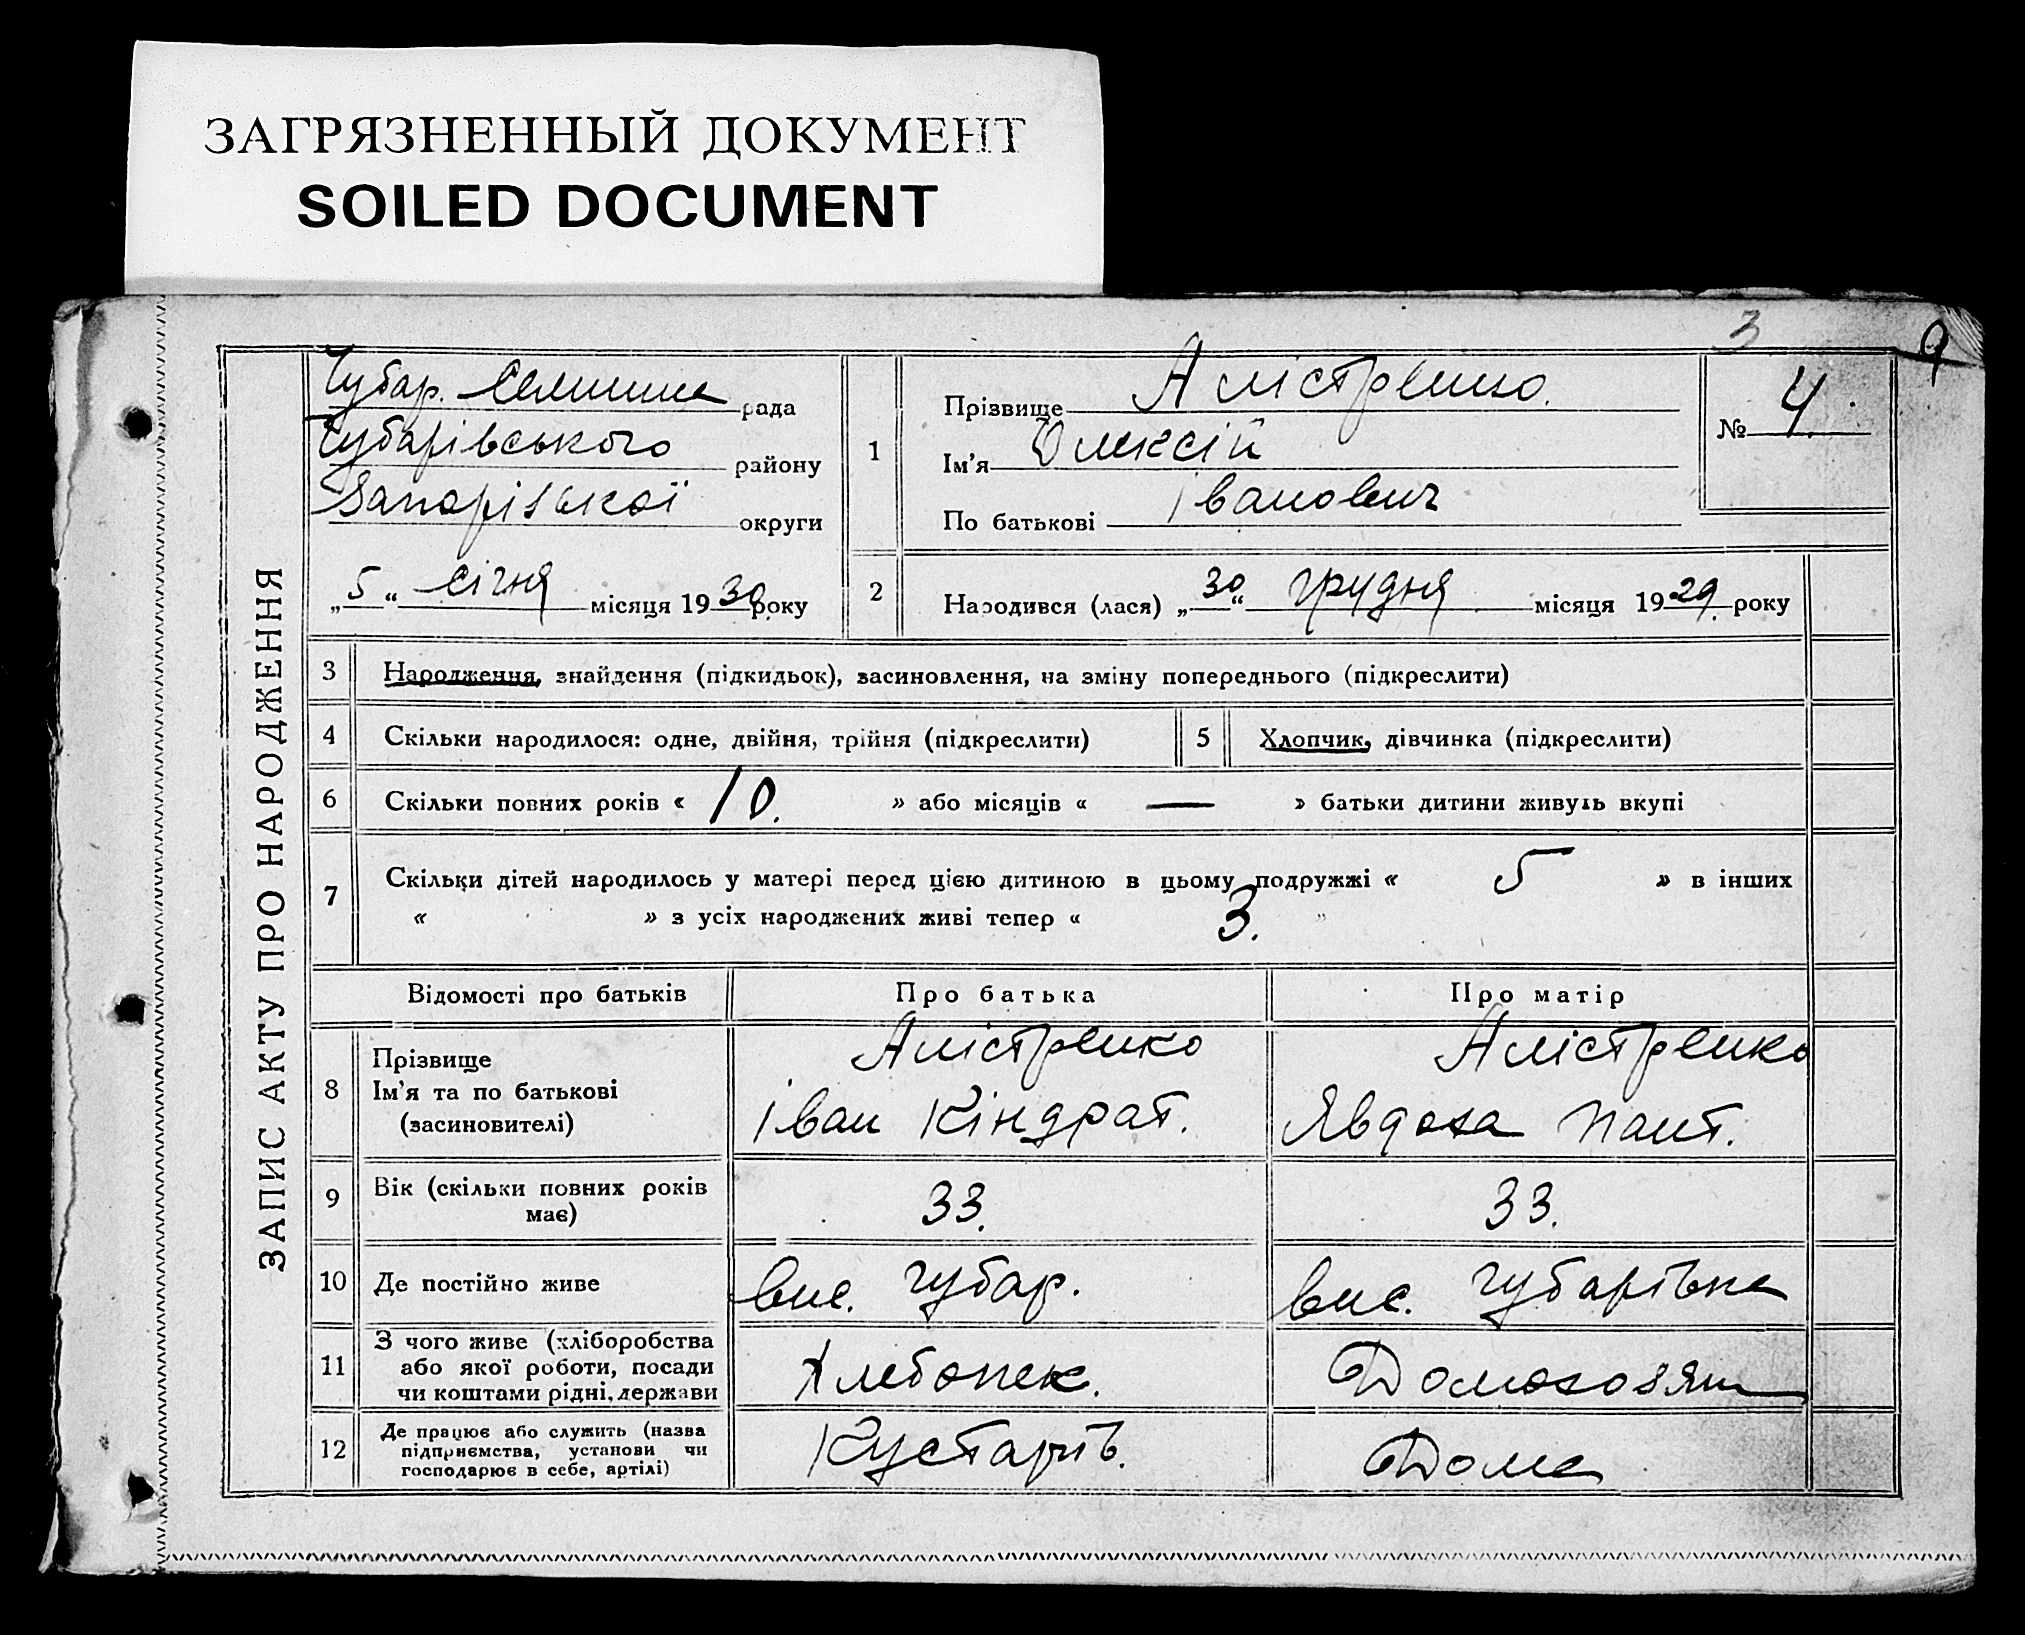 ЗАГРЯЗНЕННЫЙ ДОКУМЕНТ
SOILED DOCUMENT
3
9
ЗАПИС АКТУ ПРО НАРОДЖЕННЯ
Чубар. Селищна рада
Чубарівського району
Запорізької округи
„5“ січня місяця 1930 року
1 Прізвище Алістренко.
Ім'я Олексій
По батькові Іванович
№ 4.
2 Народився (лася) „30“ грудня місяця 1929. року
3 Народження, знайдення (підкидьок), засиновлення, на зміну попереднього (підкреслити)
4 Скільки народилося: одне, двійня, трійня (підкреслити) 5 Хлопчик, дівчинка (підкреслити)
6 Скільки повних років « 10. » або місяців « — » батьки дитини живуть вкупі
7 Скільки дітей народилось у матері перед цією дитиною в цьому подружжі « 5 » в інших
« » з усіх народжених живі тепер « 3. »
Відомості про батьків Про батька Про матір
8 Прізвище Ім'я та по батькові (засиновителі)
Алістренко Іван Кіндрат.
Алістренко Явдоха Пант.
9 Вік (скільки повних років має) 33. 33.
10 Де постійно живе вис. Чубар. вис. Чубарівка
11 З чого живе (хліборобства
або якої роботи, посади
чи коштами рідні, держави
Хлебопек. Домохозяй
12 Де працює або служить (назва
підприємства, установи чи
господарює в себе, артілі)
Кустарів. Дома